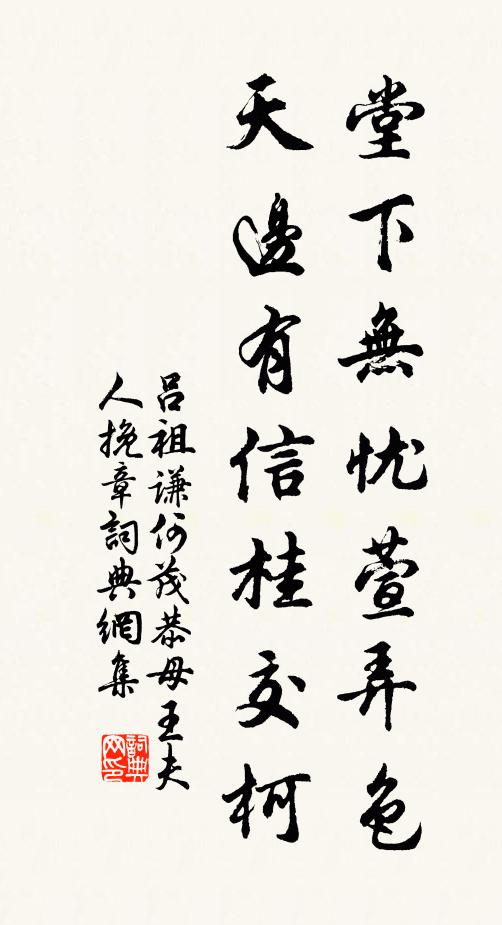 堂下無忧萱弄色
天邊有信桂交柯
吕祖谦何茂恭母王夫
人挽章詞典網集
詞典
网印